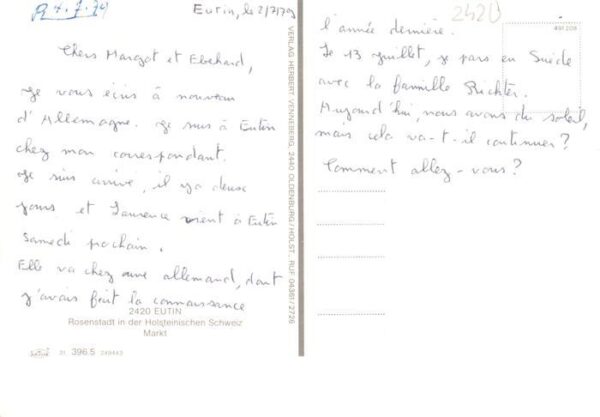 R 4.7.79
Eutin, le 2/7/79
Chers Margot et Eberhard,
Je vous écris à nouveau
d'Allemagne. Je suis à Eutin
chez mon correspondant.
Je suis arrivé, il y a deux
jours et Laurence vient à Eutin
samedi prochain.
Elle va chez une allemand, dont
j'avais fait la connaissance
2420 EUTIN
Rosenstadt in der Holsteinischen Schweiz
Markt
21 396.5
VERLAG HERBERT VENNEBERG, 2440 OLDENBURG/HOLST. RUF 04361/2726
2420
l'année dernière.
Le 13 juillet, je pars en Suède
avec la famille Richter.
Aujourd'hui, nous avons du soleil,
mais cela va-t-il continuer?
Comment allez-vous?